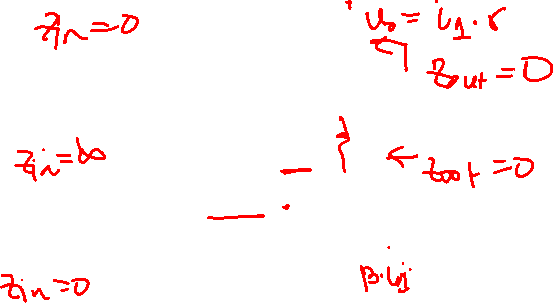 Zin=0
u₀ = i₁·r
Zout=0
Zin=∞
← Zoot=0
Zin=0
β·i₁